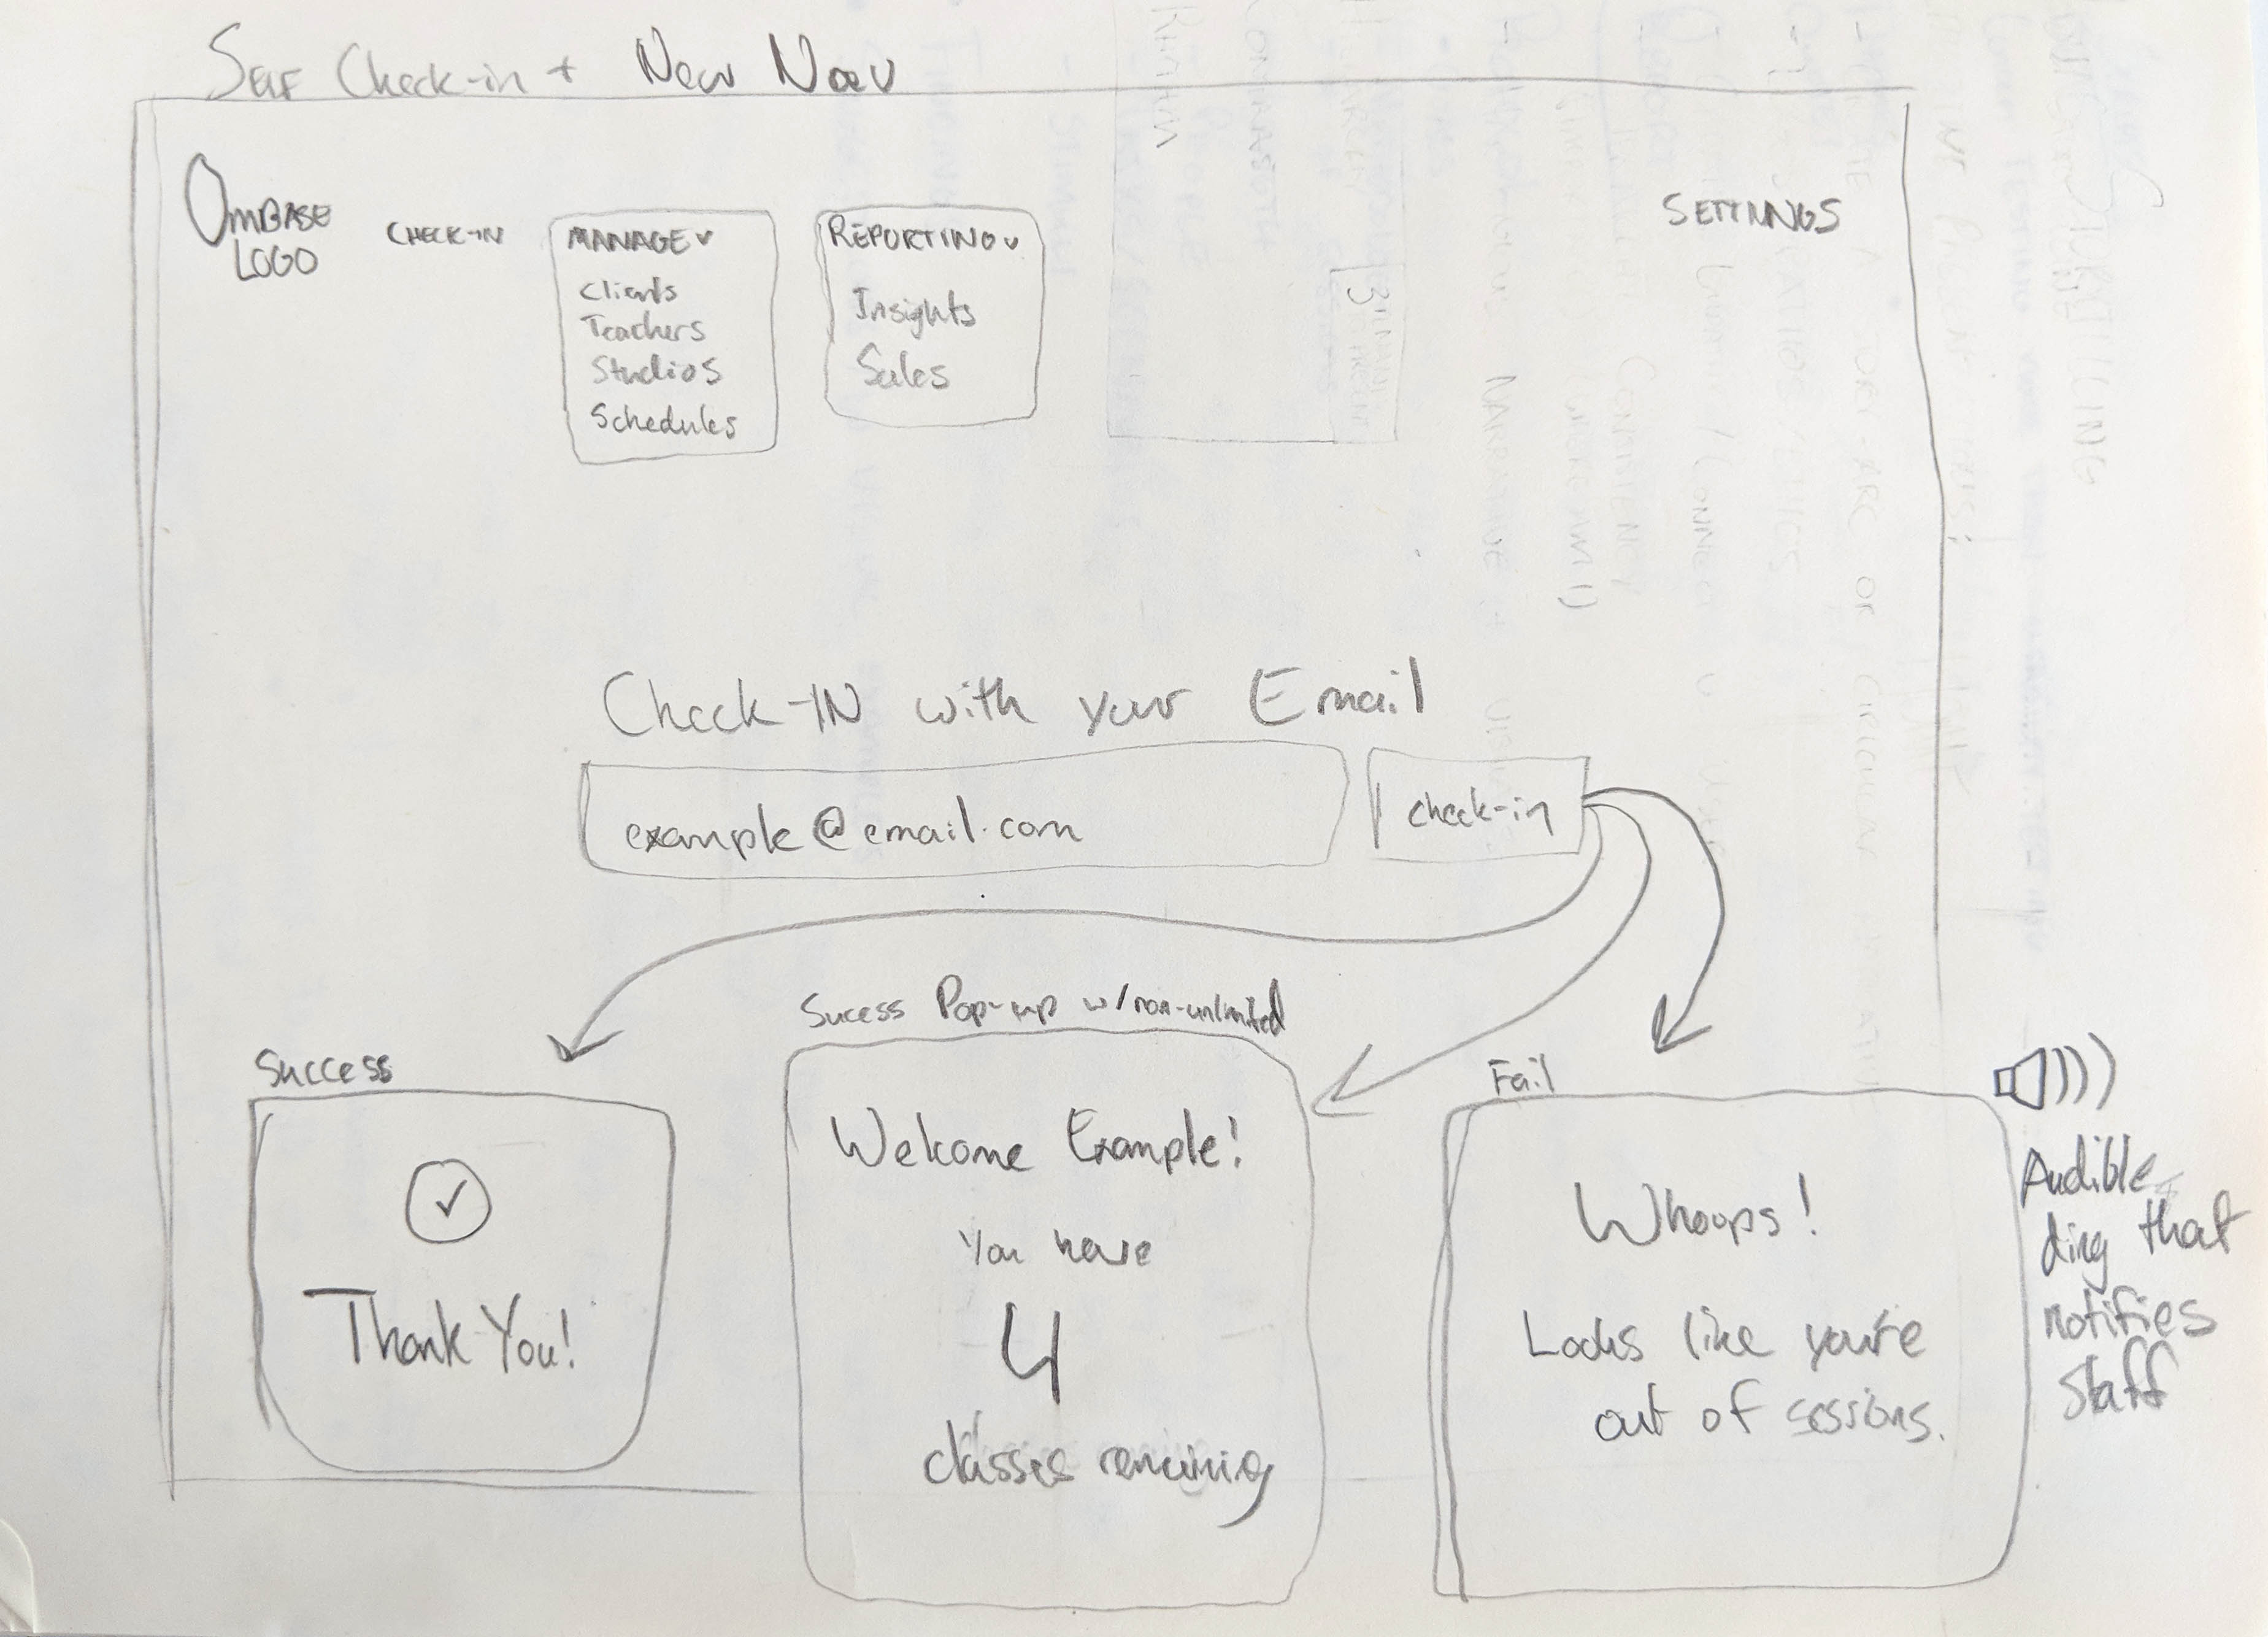 SELF Check-in + New Nav
OMBASE
LOGO
CHECK-IN
MANAGE
Clients
Teachers
Studios
Schedules
REPORTING
Insights
Sales
SETTINGS
Check-IN with your Email
example@email.com
check-in
Success
Thank You!
Sucess Pop-up w/non-unlimited
Welcome Example!
You have
4
classes remaining
Fail
Whoops!
Looks like you're
out of sessions.
Audible
ding that
notifies
Staff